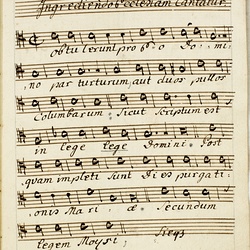 Ingrediendo Ecclesiam Cantatur
obtulerunt pro eo Domi-
no par turturum, aut duos pullos
Columbarum: Sicut Scriptum est
in lege lege Domini. Post
quam impleti Sunt Dies purgati-
onis Mariæ Secundum
legem Moysi: